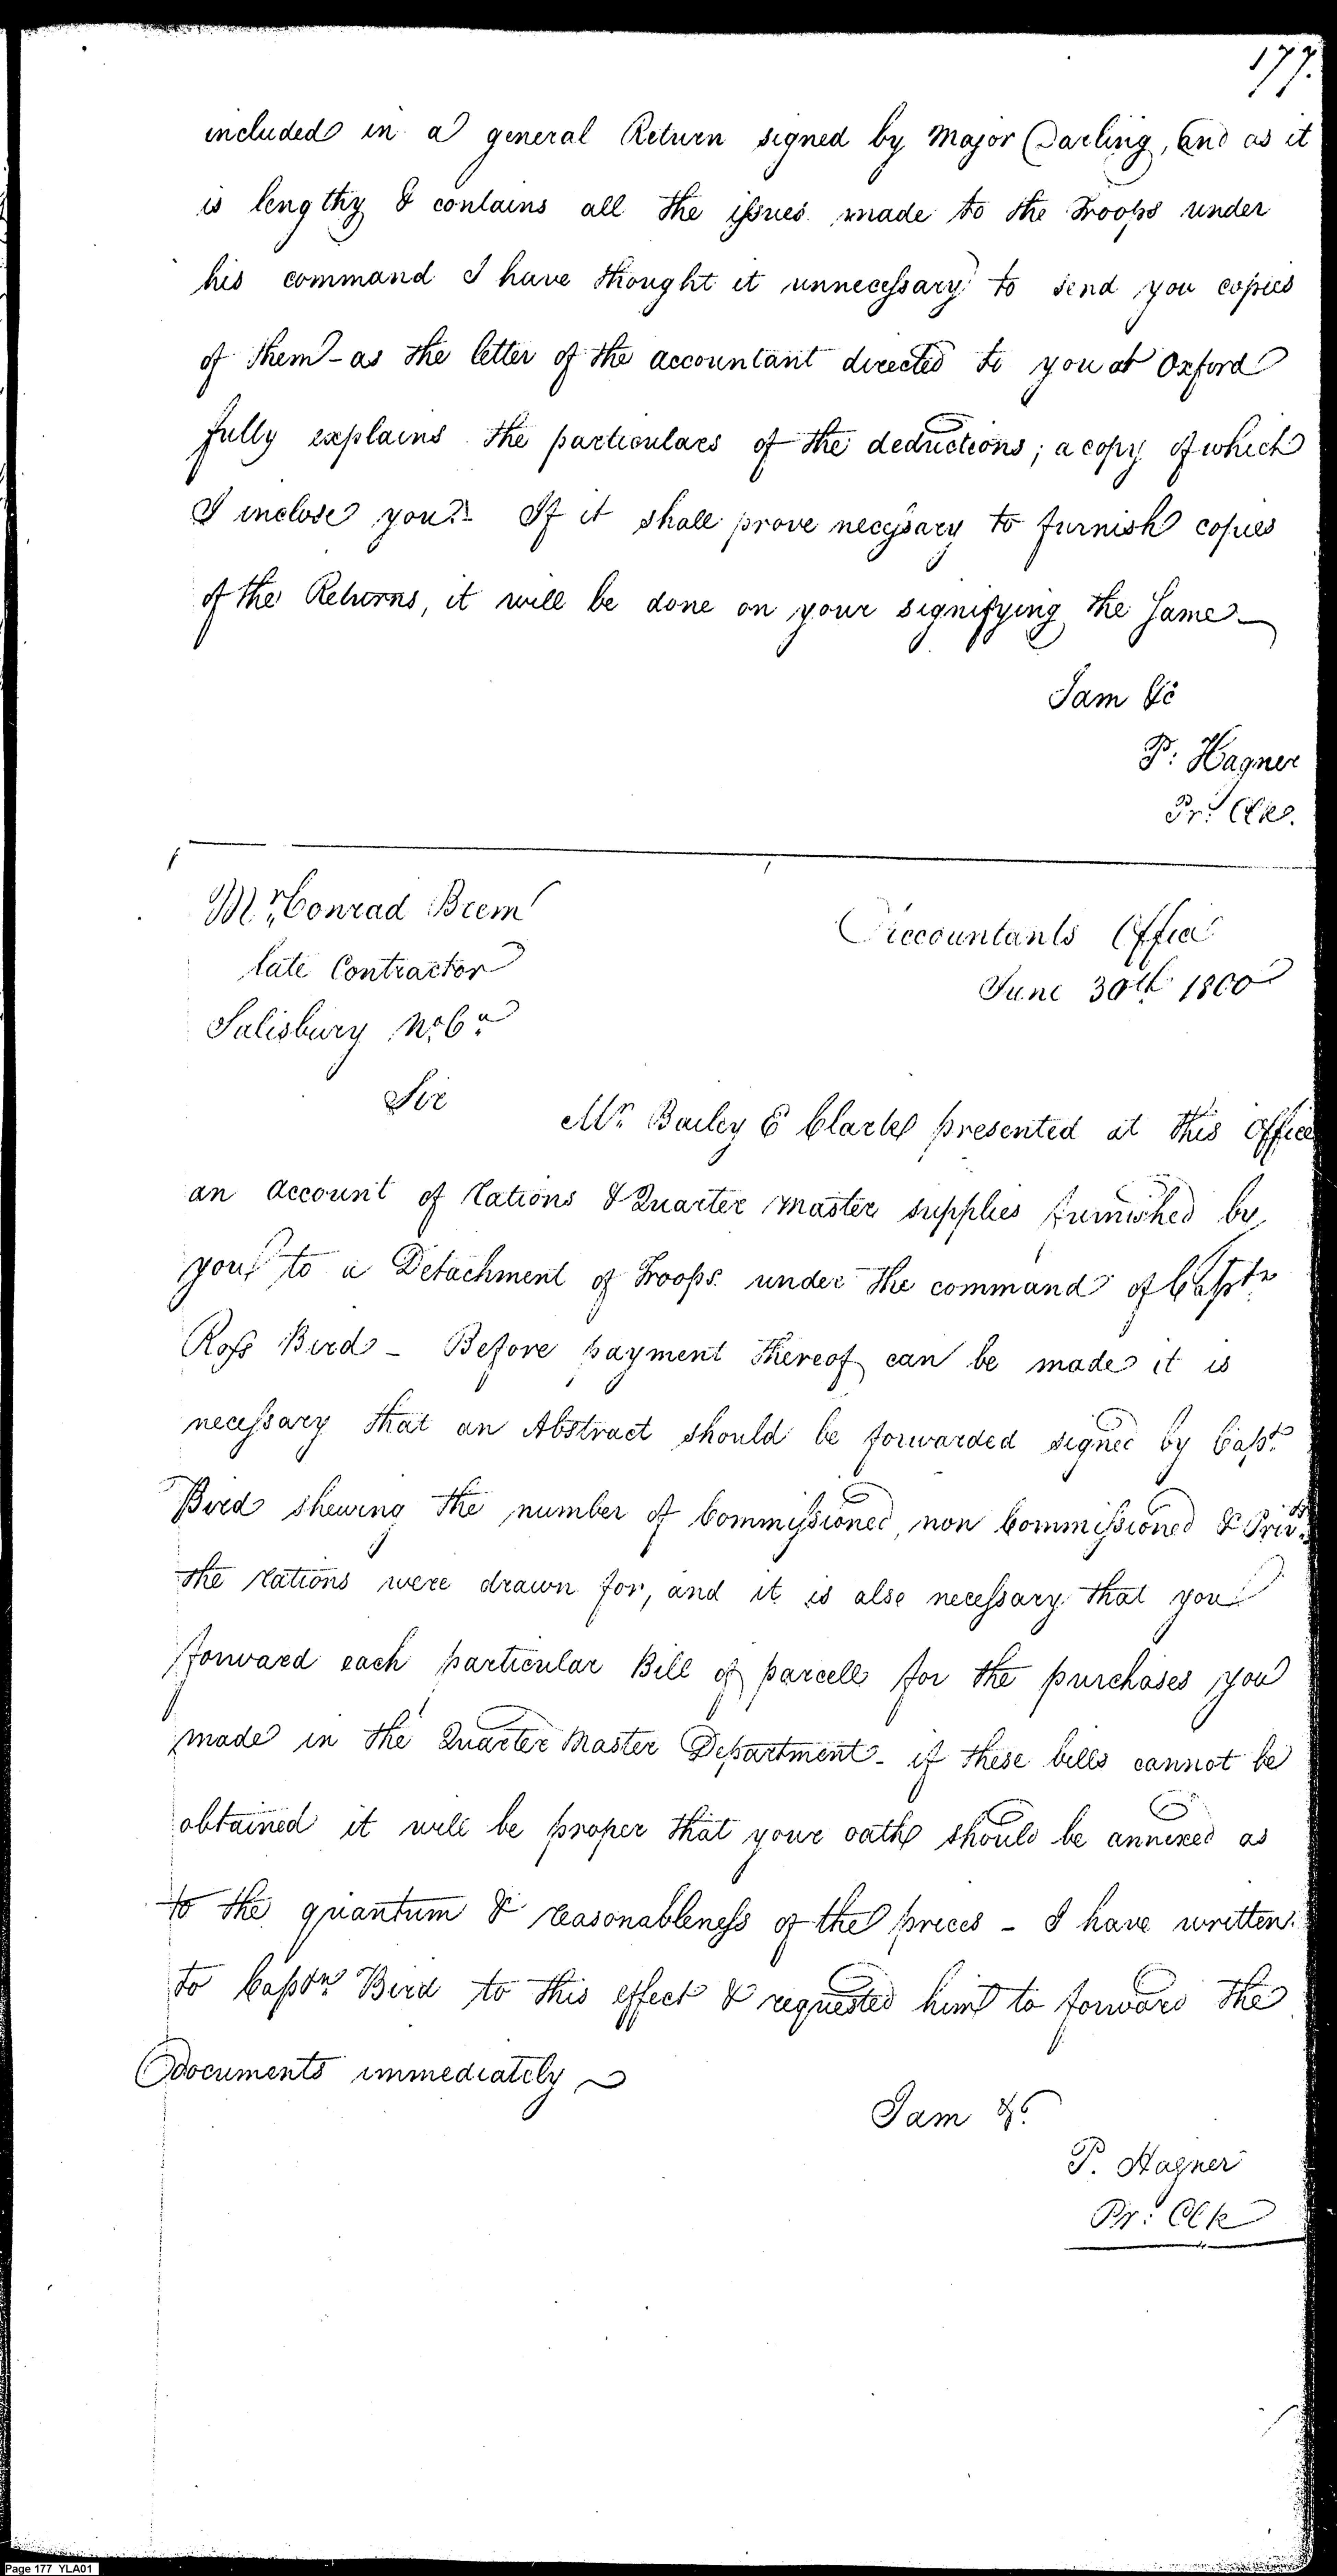 177.
included in a general Return signed by Major Darling, and as it
is lengthy & contains all the issues made to the Troops under
his command I have thought it unnecessary to send you copies
of them - as the letter of the accountant directed to you at Oxford
fully explains the particulars of the deductions; a copy of which
I inclose you. If it shall prove necessary to furnish copies
of the Returns, it will be done on your signifying the same
I am &c
P: Hagner
Pr: Clk.
Mr. Conrad Brem
late Contractor
Salisbury No. Ca
Accountants Office
June 30th 1800
Sir
Mr. Bailey E Clark presented at this Office
an account of rations & Quarter Master supplies furnished by
you to a Detachment of Troops under the command of Captn
Ross Bird - Before payment thereof can be made it is
necessary that an Abstract should be forwarded signed by Capt.
Bird shewing the number of Commissioned, non Commissioned & Privts.
the rations were drawn for, and it is also necessary that you
forward each particular Bill of parcell for the purchases you
made in the Quarter Master Department - if these bills cannot be
obtained it will be proper that your oath should be annexed as
to the quantum & reasonableness of the prices - I have written
to Captn Bird to this effect & requested him to forward the
documents immediately
I am &c.
P. Hagner
Pr: Clk
Page 177 YLA01